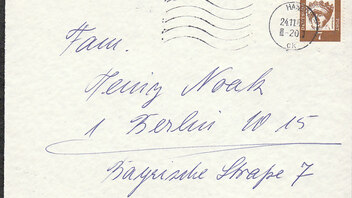 HA
24.11.6
-20
Fam.
Heinz Noak
1 Berlin W 15
Bayrische Straße 7